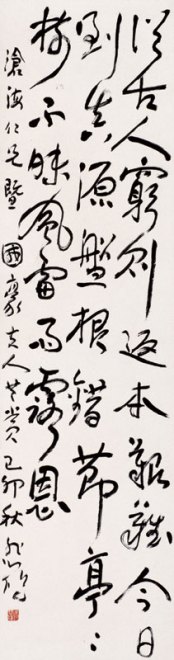 從古人窮則返本艱難今日
到真源盤根錯節亭亭
樹不昧風雷雨露恩
滄海仁兄暨國豪夫人共賞己卯秋